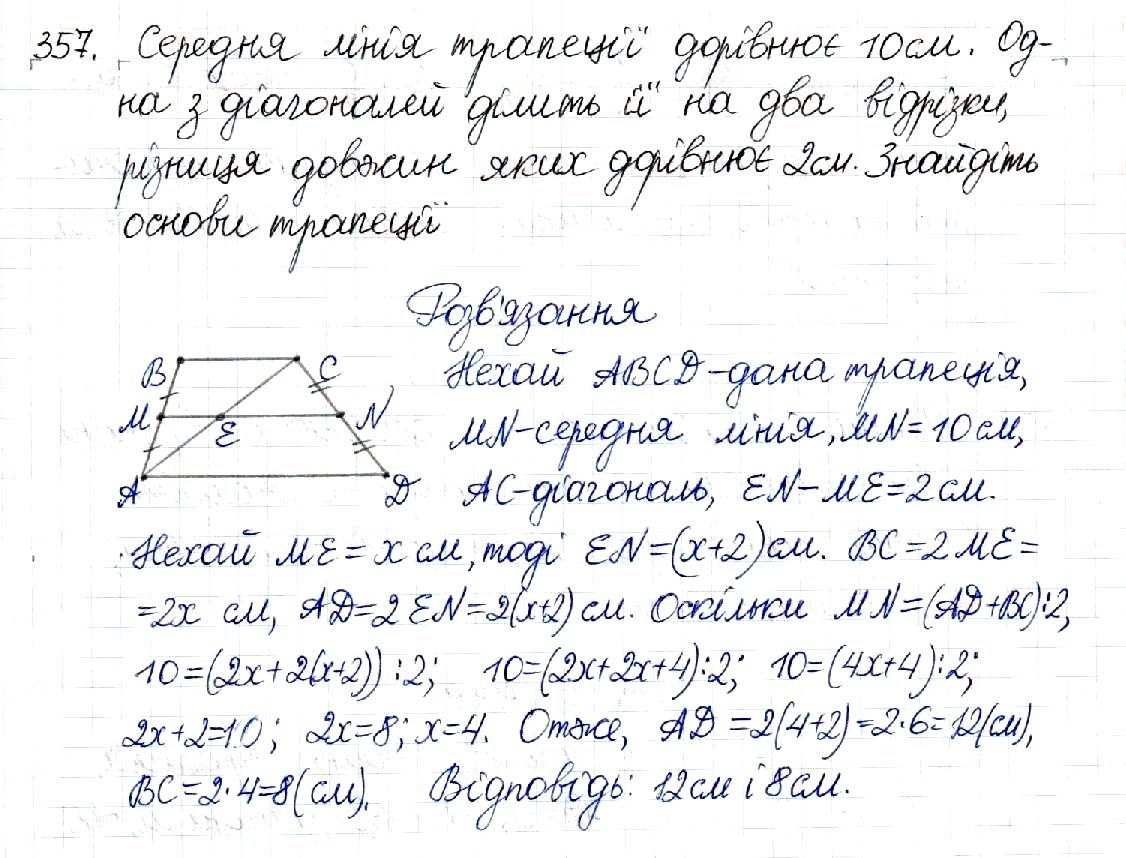 357. Середня лінія трапеції дорівнює 10 см. Од-
на з діагоналей ділить її на два відрізки,
різниця довжин яких дорівнює 2 см. Знайдіть
основи трапеції
Розв'язання
B C
M E N
A D
Нехай ABCD - дана трапеція,
MN - середня лінія, MN = 10 см,
AC - діагональ, EN - ME = 2 см.
Нехай ME = x см, тоді EN = (x+2) см. BC = 2 ME =
= 2x см, AD = 2 EN = 2(x+2) см. Оскільки MN = (AD + BC) : 2,
10 = (2x + 2(x+2)) : 2; 10 = (2x + 2x + 4) : 2; 10 = (4x + 4) : 2;
2x + 2 = 10; 2x = 8; x = 4. Отже, AD = 2(4+2) = 2·6 = 12 (см),
BC = 2·4 = 8 (см). Відповідь: 12 см і 8 см.